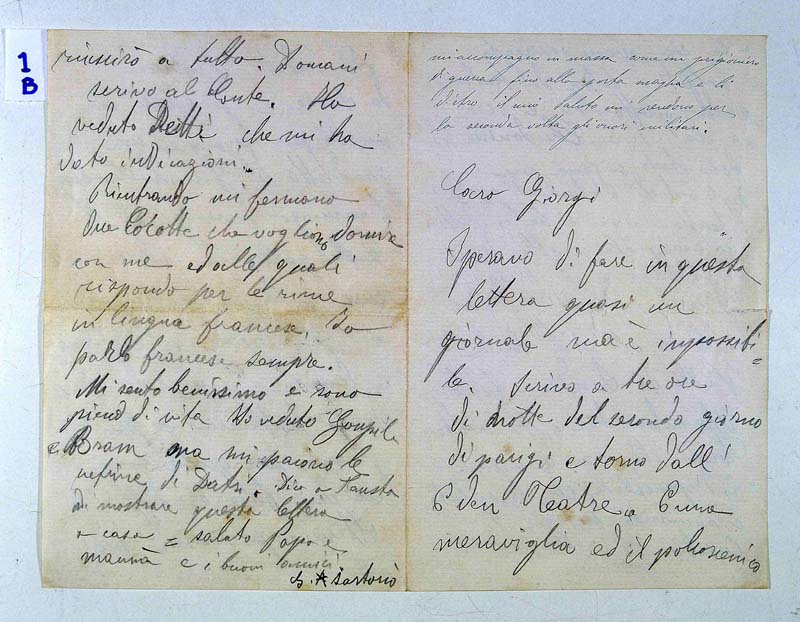 1
B
riuscirò a tutto. Domani
scrivo al Conte. Ho
veduto Detti che mi ha
dato indicazioni.
Rientrando mi fermano
due Cocotte che vogliono dormire
con me ed alle quali
rispondo per le rime
in lingua francese. Io
parlo francese sempre.
Mi sento benissimo e sono
pieno di vita Ho veduto Goupil
e Bram ma mi paiono le
vetrine di Datri. Dica a Fausta
di mostrare questa lettera
a casa = saluto Papa e
mammà e i buoni amici
G. A Sartorio
mi accompagno in massa come un prigioniero
di guerra fino alla porta magna e li
dietro il mio saluto mi rendono per
la seconda volta gli onori militari.
Caro Giorgi
Speravo di fare in questa
lettera quasi un
giornale ma è impossibi=
le. Scrivo a tre ore
di notte del secondo giorno
di parigi e torno dall'
Eden Teatre. È una
meraviglia ed il palcoscenico